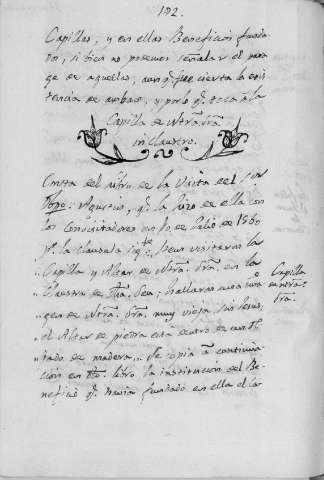 192.
Capillas, y en ellas Beneficios funda-
dos, si bien no podemos señalar el para-
ge de aquellas, aunq. fue cierta la exis-
tencia de ambas, y por lo q. toca a la
Capilla de Ntra. Sra.
in Claustro.
Consta del libro de la Visita del
Agustin, q. la hizo de ella con
los Convisitadores en 10 de Julio de 1560
la clausula sigte. Deus visitaron la
Capilla y Altar de Ntra. Sra. en la
Claustra de Seu; hallaron una ima-
gen de Ntra. Sra. muy vieja sin Jesus,
el Altar de piedra está dentro de un
de madera. Se copia a continua-
cion en dho. libro la institucion del Be-
neficio q. havia fundado en ella el
Capilla
de Ntra.
Sra.